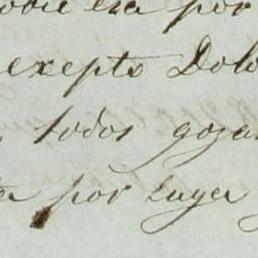 era por
exepto Dolo
todos goza
por Luga